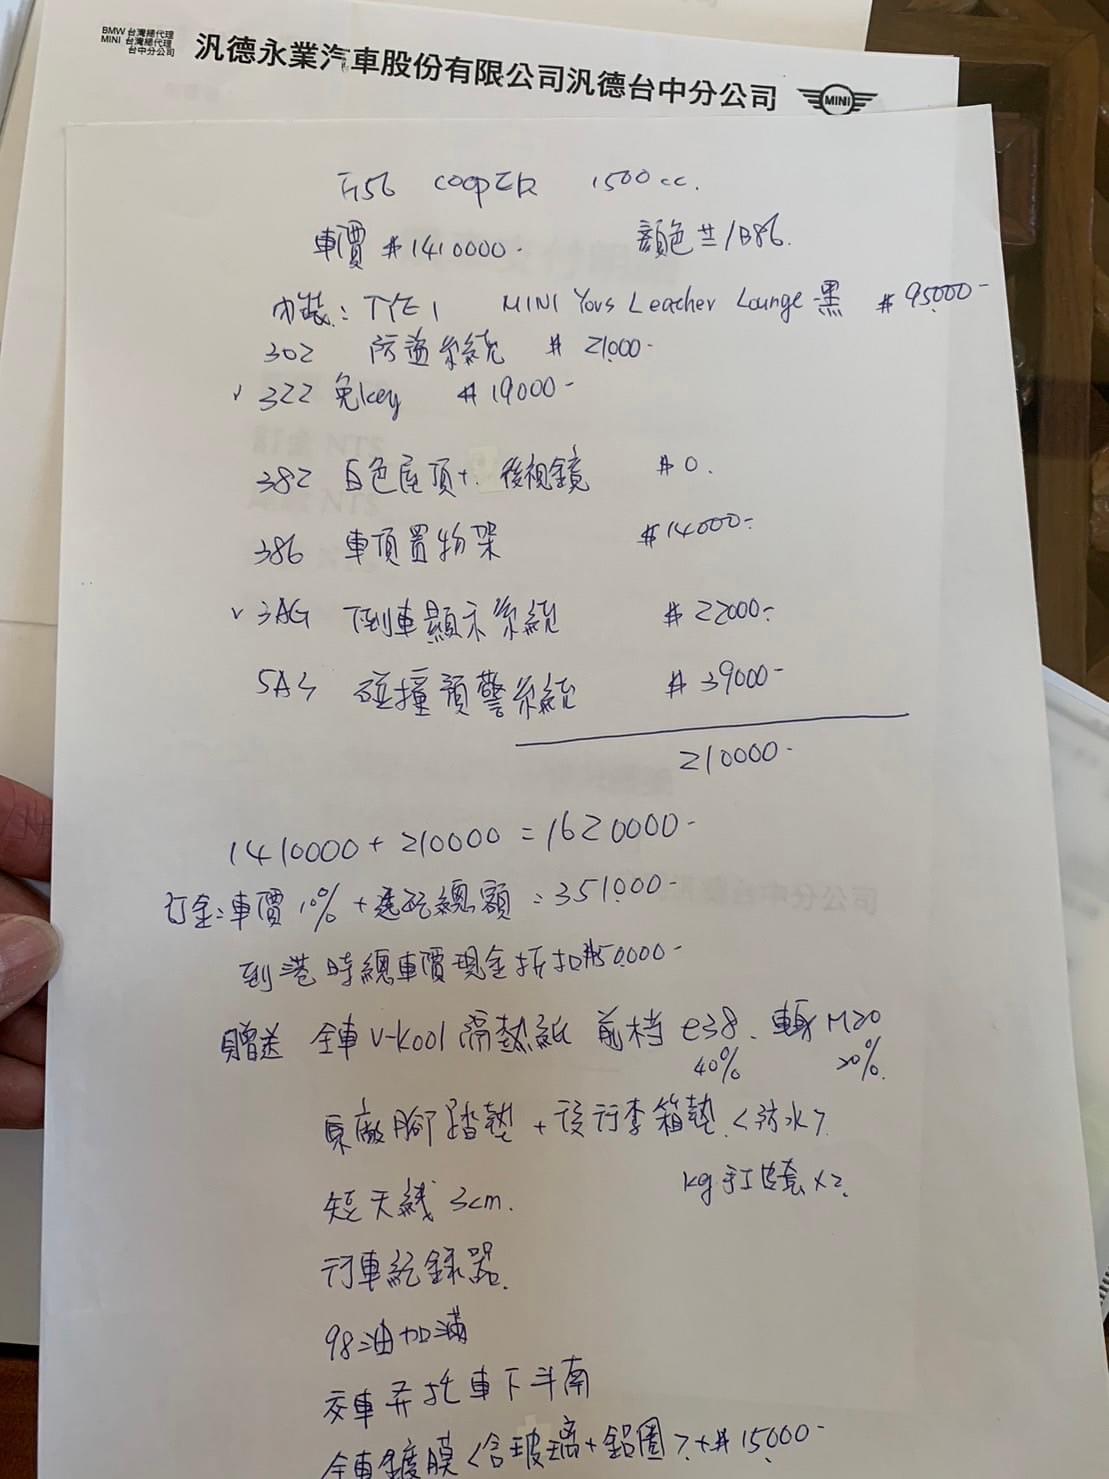 BMW 台灣總代理
MINI 台灣總代理
台中分公司
汎德永業汽車股份有限公司汎德台中分公司
MINI
F56 COOPER 1500cc.
車價 #1410000- 顏色 #B86.
內裝: TYE1 MINI Yours Leacher Lounge 黑 #95000-
302 防盜系統 #21000-
v 322 免key #19000-
382 白色屋頂+後視鏡 #0.
386 車頂置物架 #14000-
v 3AG 倒車顯示系統 #22000-
5AS 碰撞預警系統 #39000-
210000-
1410000+210000=1620000-
訂金:車價10%+選配總額=351000-
到港時總車價現金折扣#50000-
贈送 全車V-Kool隔熱紙 前档 e38. 車身 M20
40% 20%.
原廠腳踏墊+後行李箱墊<防水>
短天線 3cm. key 皮套x2.
行車紀錄器.
98油加滿
交車并托車下斗南
全車鍍膜<含玻璃+鋁圈>+#15000-